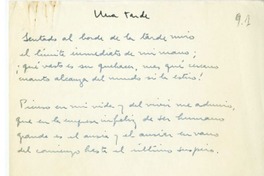 Una tarde
9.1
Sentado al borde de la tarde miro
el límite inmediato de mi mano;
¡qué vasto es su quehacer, mas qué cercano
cuanto alcanza del mundo si la estiro!
Pienso en mi vida y del vivir me admiro,
que en la empresa infeliz de ser humano
grande es el ansia y el ansiar en vano
del comienzo hasta el último suspiro.